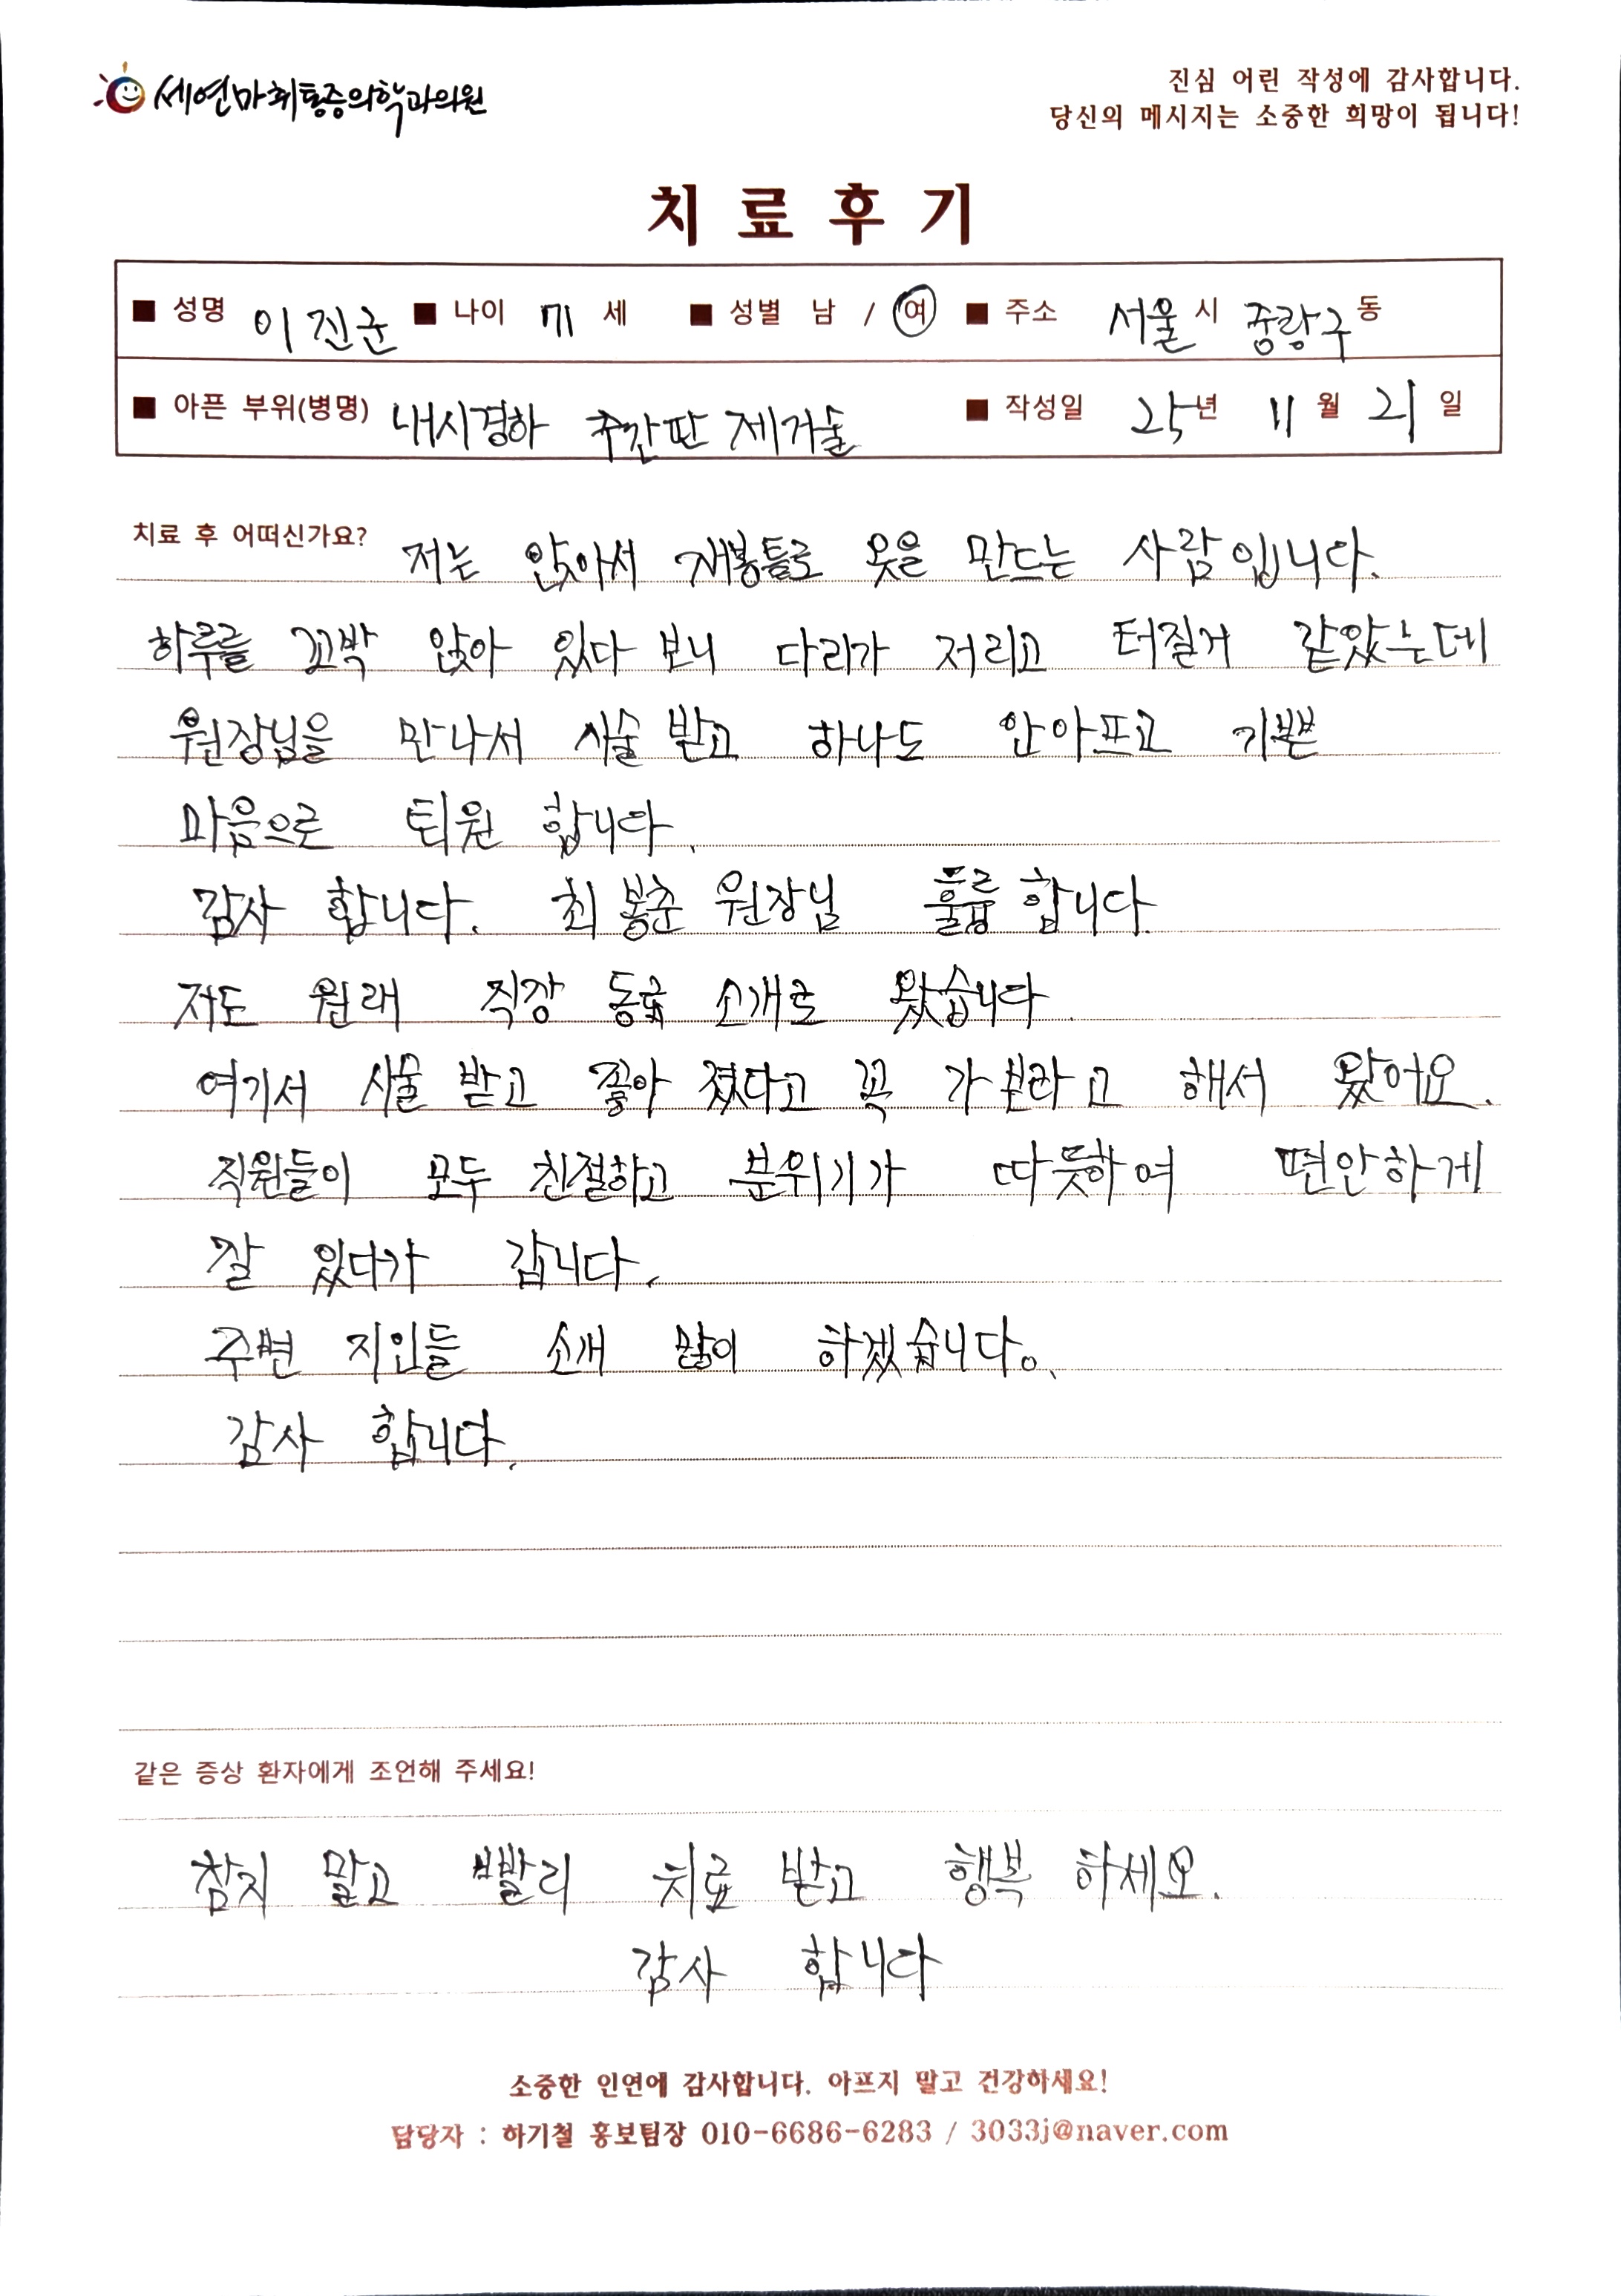 세연마취통증의학과의원
진심 어린 작성에 감사합니다.
당신의 메시지는 소중한 희망이 됩니다!
치료후기
■ 성명 이진군 ■ 나이 71 세 ■ 성별 남 / 여 ■ 주소 서울 시 중랑구 동
■ 아픈 부위(병명) 내시경하 추간판 제거술 ■ 작성일 25년 11월 21일
치료 후 어떠신가요? 저는 앉아서 재봉틀로 옷을 만드는 사람입니다.
하루를 꼬박 앉아 있다 보니 다리가 저리고 터질거 같았는데
원장님을 만나서 시술 받고 하나도 안아프고 기쁜
마음으로 퇴원 합니다.
감사 합니다. 최봉춘 원장님 훌륭합니다.
저도 원래 직장 동료 소개로 왔습니다
여기서 시술 받고 좋아 졌다고 꼭 가보라고 해서 왔어요.
직원들이 모두 친절하고 분위기가 따뜻하여 편안하게
잘 있다가 갑니다.
주변 지인들 소개 많이 하겠습니다.
감사 합니다.
같은 증상 환자에게 조언해 주세요!
참지 말고 빨리 치료 받고 행복 하세요.
감사 합니다
소중한 인연에 감사합니다. 아프지 말고 건강하세요!
담당자 : 하기철 홍보팀장 010-6686-6283 / 3033j@naver.com